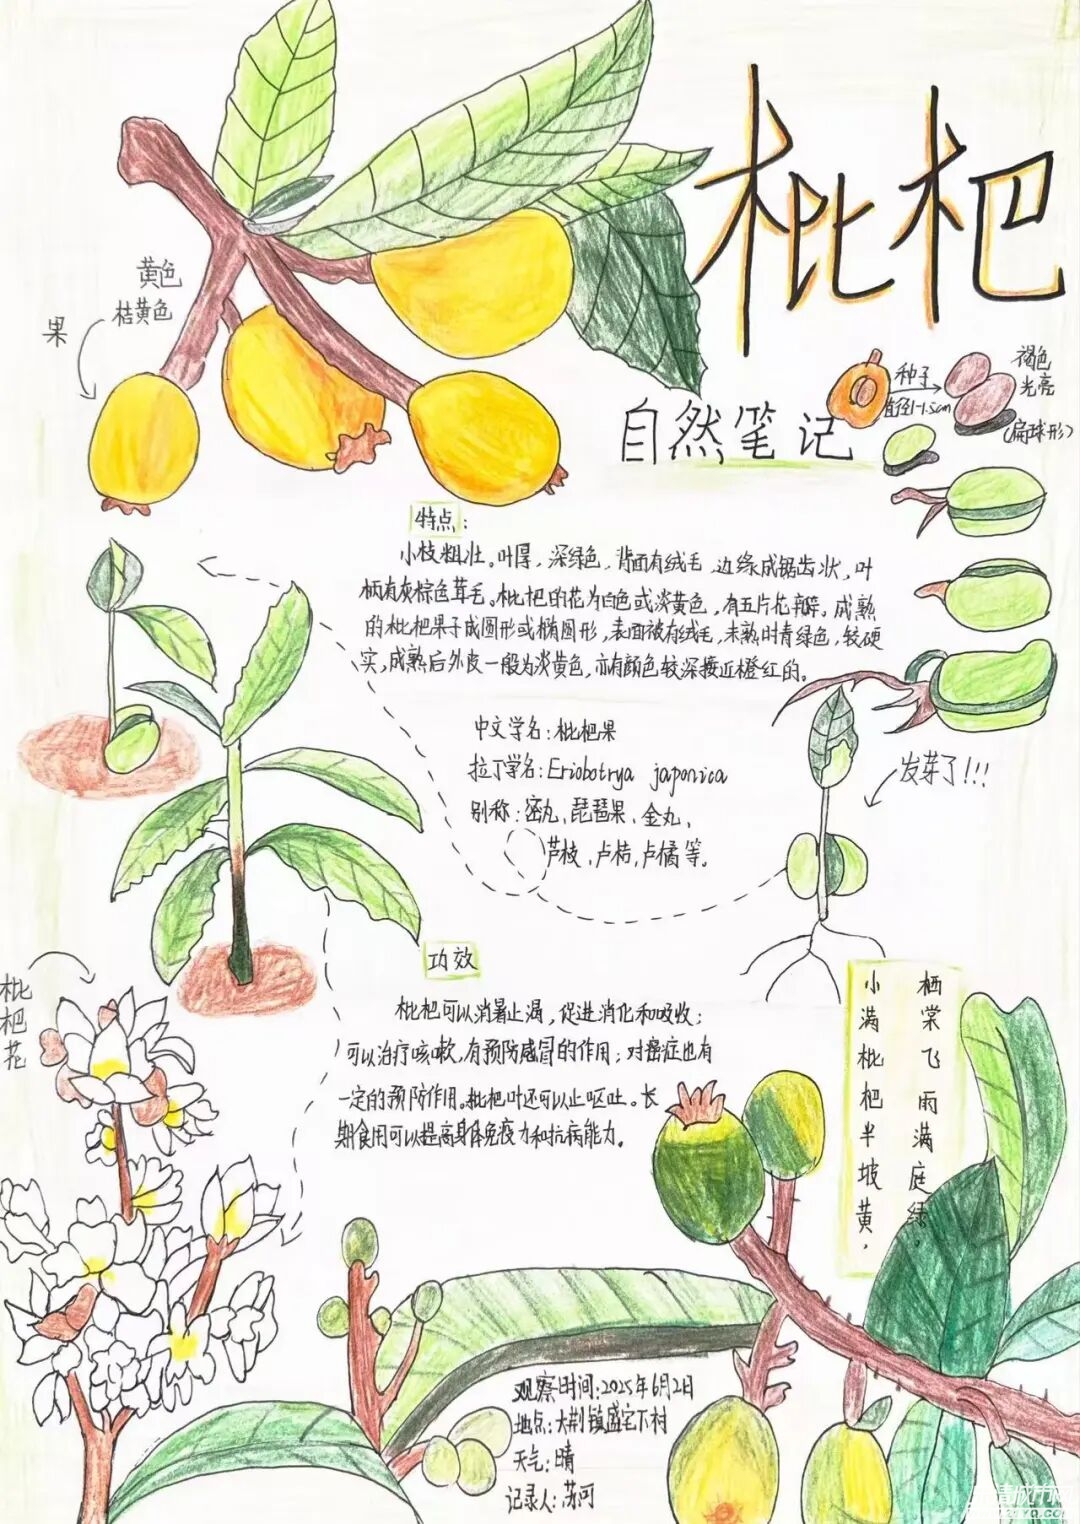 枇杷
自然笔记
黄色
桔黄色
果
种子
直径1-1.5cm
褐色
光亮
(扁球形)
特点:
小枝粗壮。叶厚,深绿色,背面有绒毛,边缘成锯齿状,叶
柄有灰棕色茸毛。枇杷的花为白色或淡黄色,有五片花瓣。成熟
的枇杷果子成圆形或椭圆形,表面被有绒毛,未熟时青绿色,较硬
实,成熟后外皮一般为淡黄色,亦有颜色较深接近橙红的。
中文学名:枇杷果
拉丁学名:Eriobotrya japonica
别称:密丸,琵琶果,金丸,
芦枝,卢桔,卢橘等。
发芽了!!!
功效
枇杷可以消暑止渴,促进消化和吸收;
可以治疗咳嗽,有预防感冒的作用;对癌症也有
一定的预防作用。枇杷叶还可以止呕吐。长
期食用可以提高身体免疫力和抗病能力。
枇杷花
栖棠飞雨满庭绿,
小满枇杷半坡黄,
观察时间:2025年6月2日
地点:大荆镇盛宅下村
天气:晴
记录人:苏可